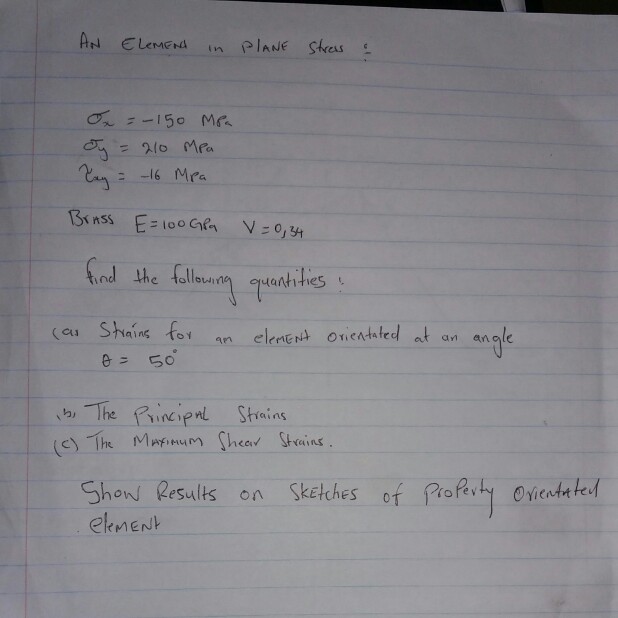 AN ElEMENt in PLANE Stress :
σx = -150 MPa
σy = 210 MPa
τxy = -16 MPa
Brass E = 100 GPa V = 0,34
find the following quantities :
(a) Strains for an elEMENt orientated at an angle
θ = 50°
(b) The Principal Strains
(c) The MAximum Shear Strains.
Show Results on SkEtches of Properly orientated
elEMENt